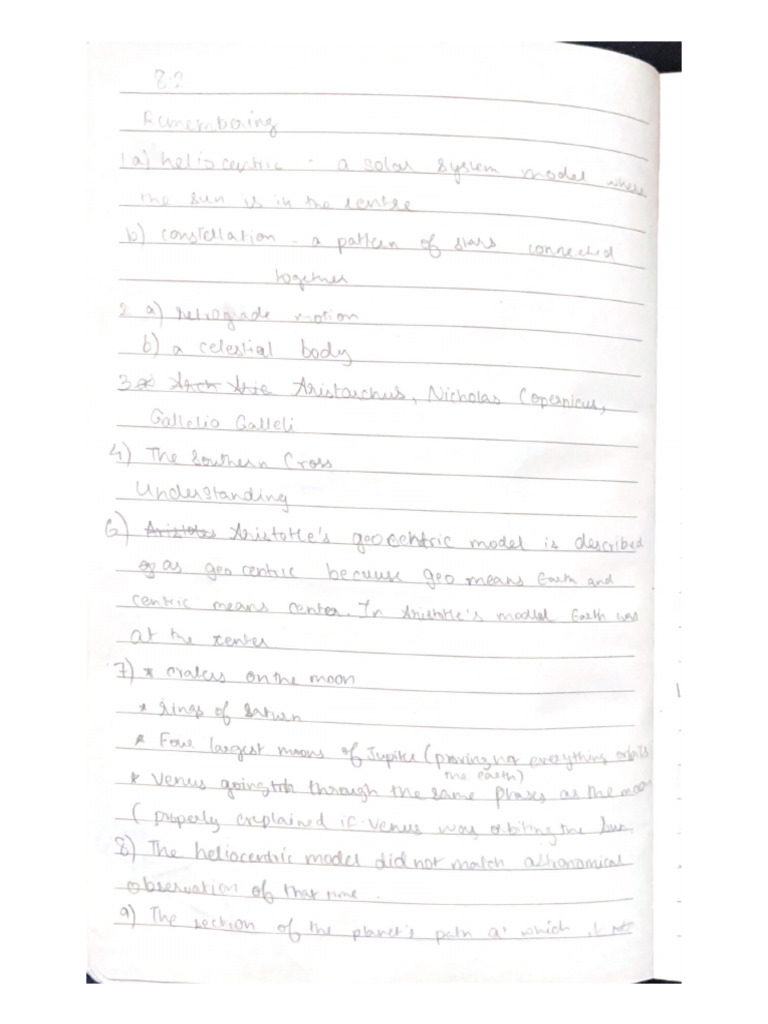 8.2
Remembering
1a) heliocentric - a solar system model where
the sun is in the centre
b) constellation - a pattern of stars connected
together
2 a) retrograde motion
b) a celestial body
3 Aristarchus, Nicholas Copernicus,
Gallelio Galleli
4) The Southern Cross
Understanding
6) Aristotle's geocentric model is described
as geocentric because geo means Earth and
centric means center. In Aristotle's model Earth was
at the center
7) * craters on the moon
* rings of saturn
* Four largest moons of Jupiter (proving not everything orbits
the earth)
* Venus going through the same phases as the moon
( properly explained if Venus was orbiting the Sun
8) The heliocentric model did not match astronomical
observation of that time.
9) The section of the planet's path at which it